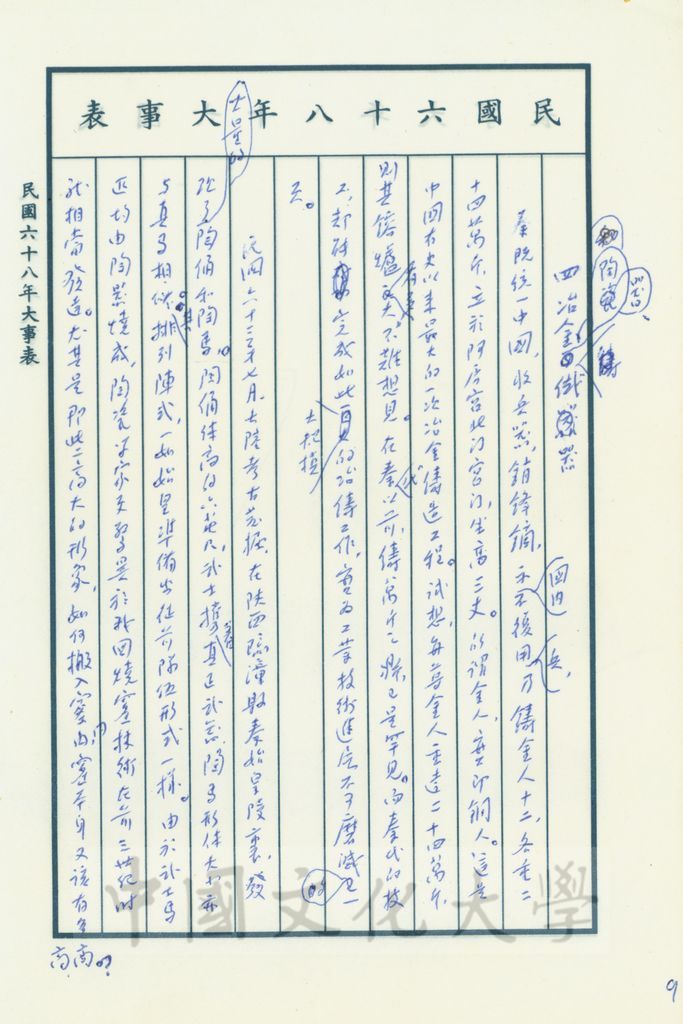 民國六十八年大事表
民國六十八年大事表
四 冶金 鑄 陶瓷 器
秦既統一中國，收兵器，銷鋒鏑，示不復用兵，乃鑄金人十二，各重二
國內
十四萬斤，立於阿房宮北門宮門，坐高三丈。所謂金人，實即銅人。這是
中國有史以來最大的一次冶金鑄造工程。試想，每尊金人重達二十四萬斤，
則其熔爐之大，不難想見。在秦代以前，鑄萬斤之鼎，已是罕見。而秦代的技
工，卻能完成如此大規模的冶鑄工作，實為工業技術進展不可磨滅的一
頁。
民國六十三年七月，大陸考古發掘，在陝西臨潼縣秦始皇陵裏，發
大量的
現了陶俑和陶馬，陶俑體高約六英尺，武士攜著真正武器，陶馬形體大小亦
與真馬相似。其排列陣式，一如始皇準備出征前隊伍形式一樣。由於武士馬
匹均由陶器燒成，陶瓷專家更驚異於我國燒窯技術在前三世紀時
就相當發達。尤其是即此高大的形象，如何搬入窯內，窯本身又該有多
高
中國文化大學
9